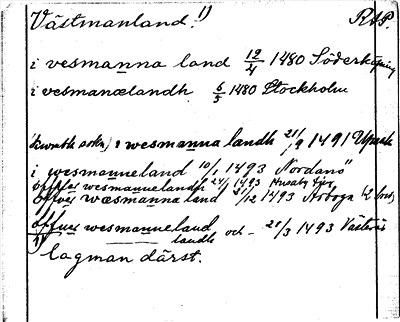 Västmanland. 1) RAP.
i vesmanna land 12/4 1480 Söderköping
i vesmanælandh 6/5 1480 Stockholm
i wesmanna landh 21/9 1491 Upsala
i wesmanneland 10/1 1493 Nordanö
öffver wesmannelandh 24/1 1493
öffver wæsmanna land 21/12 1493 Arboga
öffver wesmanneland
landh och - 21/3 1493 Västerås
1) lagman därst.